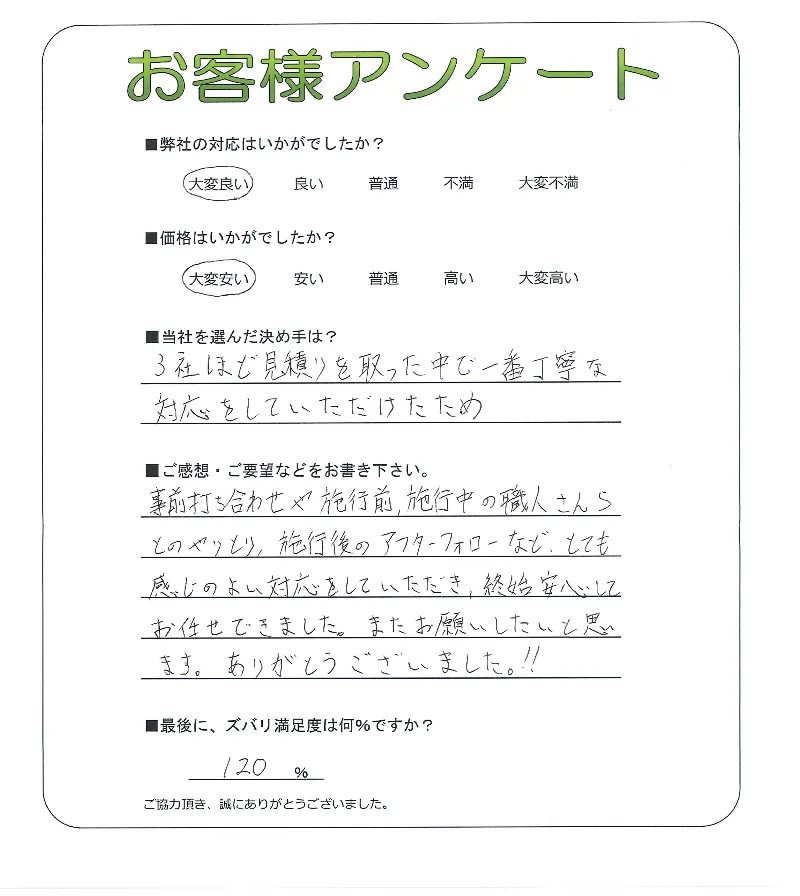 お客様アンケート
■弊社の対応はいかがでしたか？
大変良い 良い 普通 不満 大変不満
■価格はいかがでしたか？
大変安い 安い 普通 高い 大変高い
■当社を選んだ決め手は？
3社ほど見積りを取った中で一番丁寧な
対応をしていただけたため
■ご感想・ご要望などをお書き下さい。
事前打ち合わせや施行前,施行中の職人さんら
とのやりとり,施行後のアフターフォローなど、とても
感じのよい対応をしていただき,終始安心して
お任せできました。またお願いしたいと思い
ます。ありがとうございました。!!
■最後に、ズバリ満足度は何％ですか？
120 %
ご協力頂き、誠にありがとうございました。